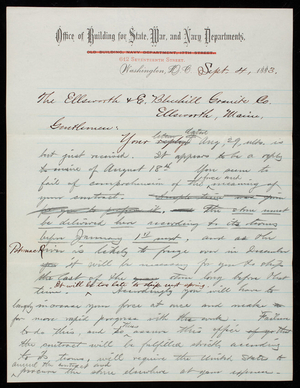 Office of Building for State, War, and Navy Departments,
Washington, D.C. Sept. 4, 1883.
The Ellsworth & E. Bluehill Granite Co.
Ellsworth, Maine,
Gentlemen:
Your letter dated Aug. 29, ulto. is
but just received. It appears to be a reply
to mine of August 18th. You seem to
fail of comprehension of the meaning of
your contract.
the stone must
be delivered here according to its terms
before January 1st next, and as the
Potomac River is likely to freeze you in December
it will be necessary for you to ship
the last of the stone long before that
time. It will be too late to ship next spring.
Accordingly you will have to
largely increase your force at once and make
far more rapid progress with the work. Failure
to do this, and to assure this office
the contract will be fulfilled strictly according
to its terms, will require the United States to
annul the contract and
procure the stone elsewhere at your expense.